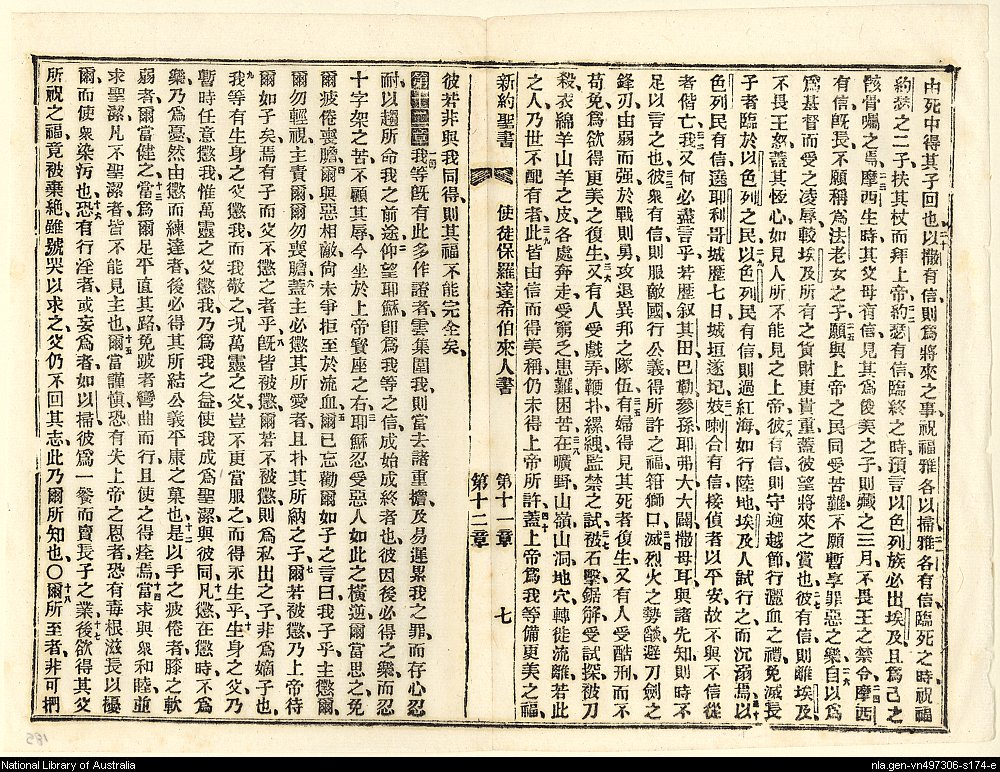 由死中得其子回也以撒有信則爲將來之事祝福雅各以掃雅各有信臨死之時祝福
約瑟之二子扶其杖而拜上帝約瑟有信臨終之時預言以色列族必出埃及且爲己之
骸骨囑之焉摩西生時其父母有信見其爲俊美之子則藏之三月不畏王之禁令摩西
有信旣長不願稱爲法老女之子願與上帝之民同受苦難不願暫享罪惡之樂自以爲
爲基督而受之凌辱較埃及所有之貨財更貴重蓋彼望將來之賞也彼有信則離埃及
不畏王怒蓋其恆心如見人所不能見之上帝彼有信則守逾越節行灑血之禮免滅長
子者臨於以色列之民以色列民有信則過紅海如行陸地埃及人試行之而沉溺焉以
色列民有信遶耶利哥城歷七日城垣遂圮妓喇合有信接偵者以平安故不與不信從
者偕亡我又何必盡言乎若歷叙其田巴勒參孫耶弗大大闢撒母耳與諸先知則時不
足以言之也彼衆有信則服敵國行公義得所許之福箝獅口滅烈火之勢燄避刀劍之
鋒刃由弱而强於戰則勇攻退異邦之隊伍有婦得見其死者復生又有人受酷刑而不
苟免爲欲得更美之復生又有人受戲弄鞭扑縲絏監禁之試被石擊鋸解受試探被刀
殺衣綿羊山羊之皮各處奔走受窮乏患難困苦在曠野山嶺山洞地穴轉徙流離若此
之人乃世不配有者此皆由信而得美稱仍未得上帝所許蓋上帝爲我等備更美之福
新約聖書 使徒保羅達希伯來人書 第十一章 第十二章 七
彼若非與我同得則其福不能完全矣
第十二章我等旣有此多作證者雲集圍我則當去諸重擔及易遲累我之罪而存心忍
耐以趨所命我之前途仰望耶穌卽爲我等之信成始成終者也彼因後必得之樂而忍
十字架之苦不顧其辱今坐於上帝寶座之右耶穌忍受惡人如此之橫逆爾當思之免
爾疲倦喪膽爾與惡相敵尙未爭拒至於流血爾已忘勸爾如子之言曰我子乎主懲爾
爾勿輕視主責爾爾勿喪膽蓋主必懲其所愛者且扑其所納之子爾若被懲乃上帝待
爾如子矣焉有子而父不懲之者乎旣皆被懲爾若不被懲則爲私出之子非爲嫡子也
我等有生身之父懲我而我敬之况萬靈之父豈不更當服之而得永生乎生身之父乃
暫時任意懲我惟萬靈之父懲我乃爲我之益使我成爲聖潔與彼同凡懲在懲時不爲
樂乃爲憂然由懲而練達者後必得其所結公義平康之菓也是以手之疲倦者膝之軟
弱者爾當健之當爲爾足平直其路免跛者彎曲而行且使之得痊焉當求與衆和睦並
求聖潔凡不聖潔者皆不能見主也爾當謹愼恐有失上帝之恩者恐有毒根滋長以擾
爾而使衆染汚也恐有行淫者或妄爲者如以掃彼爲一餐而賣長子之業後欲得其父
所祝之福竟被棄絕雖號哭以求之父仍不回其志此乃爾所知也〇爾所至者非可捫
National Library of Australia
nla.gen-vn497306-s174-e